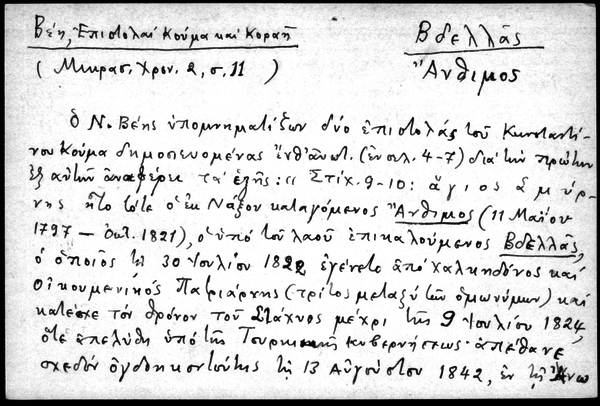 Βέη, Ἐπιστολαὶ Κούμα καὶ Κοραῆ
Βδελλᾶς
(Μικρασ. Χρον. 2, σ. 11)
Ἄνθιμος
ὁ Ν. Βέης ὑπομνηματίζων δύο ἐπιστολὰς τοῦ Κωνσταντί-
νου Κούμα δημοσιευομένας ἐνθ' ἀνωτ. (ἐν σελ. 4-7) διὰ τὴν πρώτην
ἐξ αὐτῶν ἀναφέρει τὰ ἑξῆς: « Στίχ. 9-10: ἅγιος Σμύρ-
νης ἦτο τότε ὁ ἐκ Νάξου καταγόμενος Ἄνθιμος (11 Μαΐου
1797 — Ὀκτ. 1821), ὁ ὑπὸ τοῦ λαοῦ ἐπικαλούμενος Βδελλᾶς,
ὁ ὁποῖος τῇ 30 Ἰουλίου 1822 ἐγένετο ἀπὸ Χαλκηδόνος καὶ
Οἰκουμενικὸς Πατριάρχης (τρίτος μεταξὺ τῶν ὁμωνύμων) καὶ
κατέσχε τὸν θρόνον τοῦ Στάχυος μέχρι τῆς 9 Ἰουλίου 1824,
ὅτε ἀπελύθη ὑπὸ τῆς Τουρκικῆς κυβερνήσεως· ἀπέθανε
σχεδὸν ὀγδοηκοντούτης τῇ 13 Αὐγούστου 1842, ἐν τῇ Ἄνω